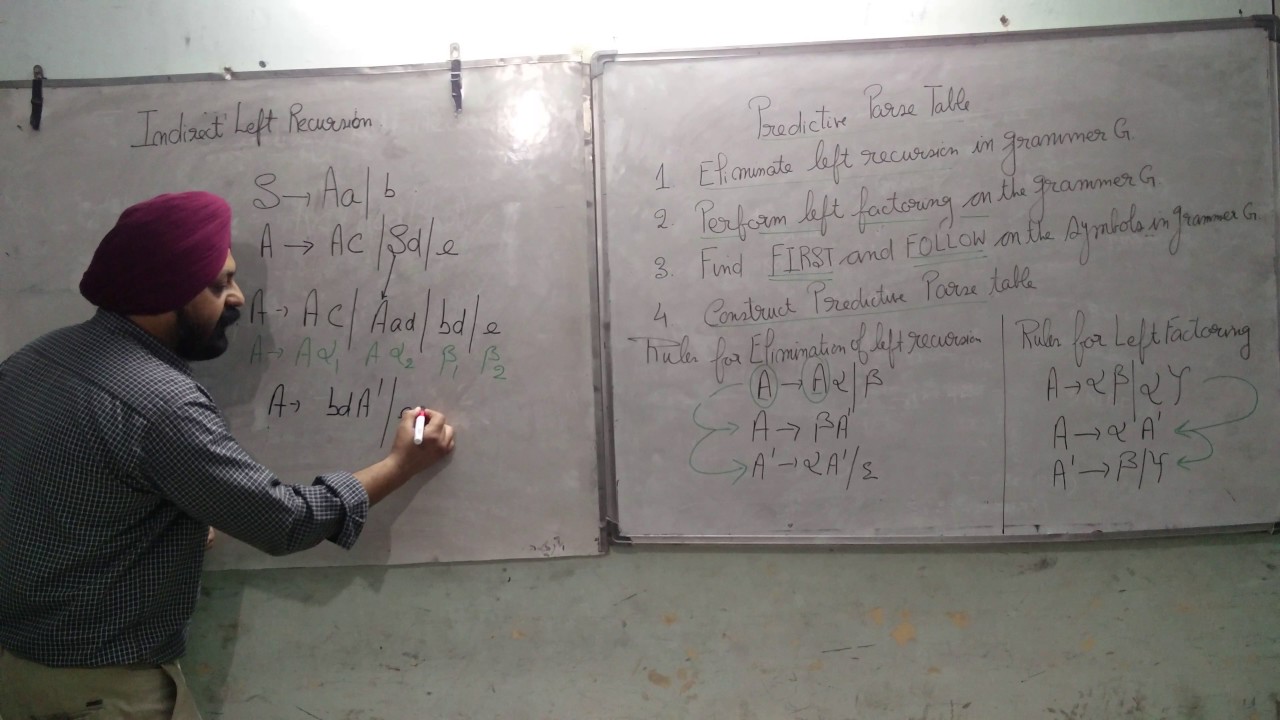 Indirect Left Recursion
S → Aa | b
A → AC | Sd | e
A → AC | Aad | bd | e
A → Aα₁ Aα₂ β₁ β₂
A → bdA' /
Predictive Parse Table
1 Eliminate left recursion in grammer G.
2. Perform left factoring on the grammer G.
3. Find FIRST and FOLLOW on the Symbols in grammer G
4 Construct Predictive Parse table
Rules for Elimination of left recursion
A → Aα | β
A → βA'
A' → αA' / ε
Rules for Left Factoring
A → αβ | αγ
A → α'A'
A' → β / γ